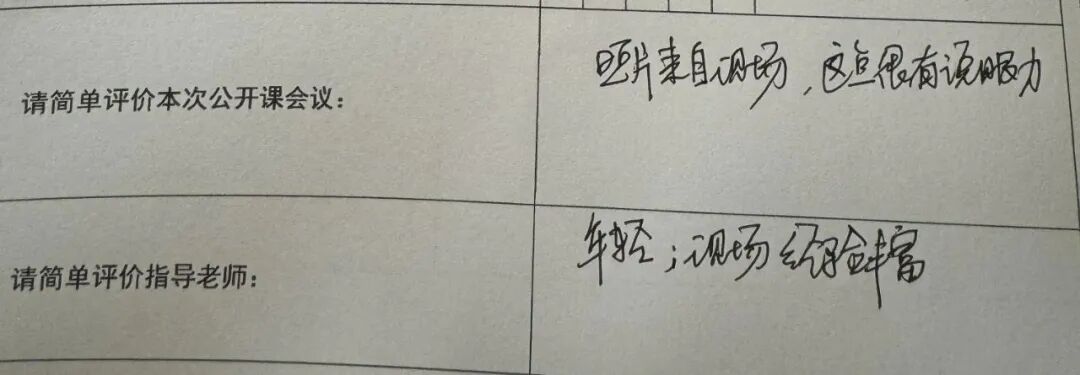 请简单评价本次公开课会议：
照片来自现场，这点很有说服力
请简单评价指导老师：
年轻；现场经验丰富